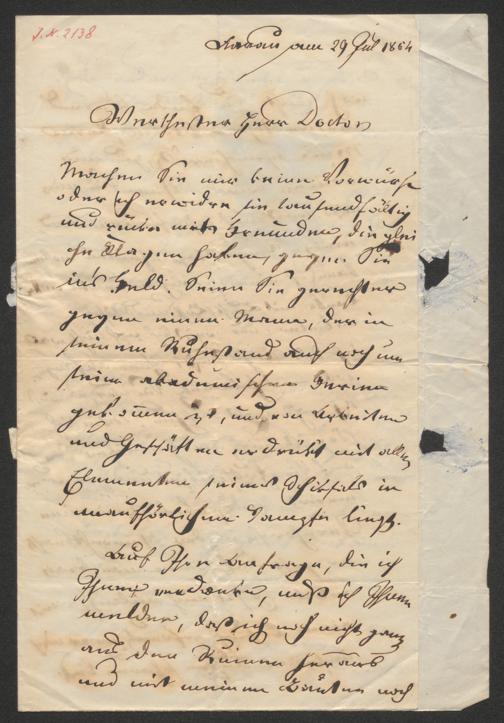 I.N. 2138
Aarau am 29 Jul 1864
Werthester Herr Doctor
Machen Sie mir keine Vorwürfe
oder ich erwidre sie tausendfältig
und rücke mit Freunden, die glei
che Klagen haben, gegen Sie
ins Feld. Seien Sie gerechter
gegen einen Mann, der in
seinem Ruhestand auch noch um
seine akademischen Ferien
gekommen ist, und von Arbeiten
und Geschäften erdrükt mit allen
Elementen seines Schiksals in
unaufhörlichem Kampfe liegt.
Auf Ihre Anfrage, die ich
Ihnen verdanke, muß ich Ihnen
melden, daß ich noch nicht ganz
aus den Ruinen heraus
und mit meinen Bauten noch